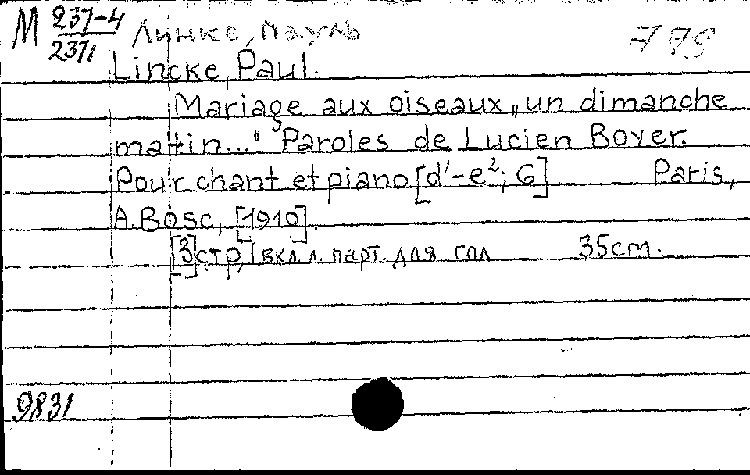 М 237-4
237i
Линке, Пауль
Lincke, Paul.
Mariage aux oiseaux „un dimanche
mattin..." Paroles de Lucien Boyer.
Pour chant et piano [d'-e²; G] Paris,
A.Bosc, [1910].
[3] стр, 1 вкл л. парт. для гол 35cm.
9831